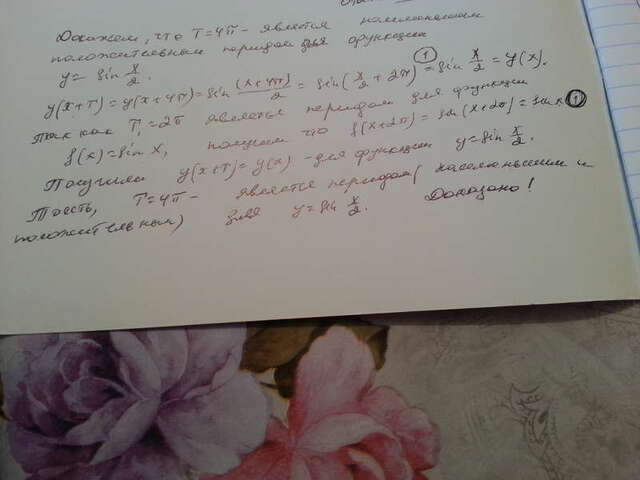 Докажем, что T=4π - является наименьшим
положительным периодом для функции
y= sin x/2.
y(x+T)=y(x+4π)=sin (x+4π)/2 = sin(x/2 + 2π) ①= sin x/2 = y(x).
так как T₁=2π является периодом для функции
f(x)=sin x, получим что f(x+2π)=sin(x+2π)=sin x ①
Получили y(x+T)=y(x) - для функции y=sin x/2.
Тоесть, T=4π - является периодом (наименьшим и
положительным) для y=sin x/2. Доказано!